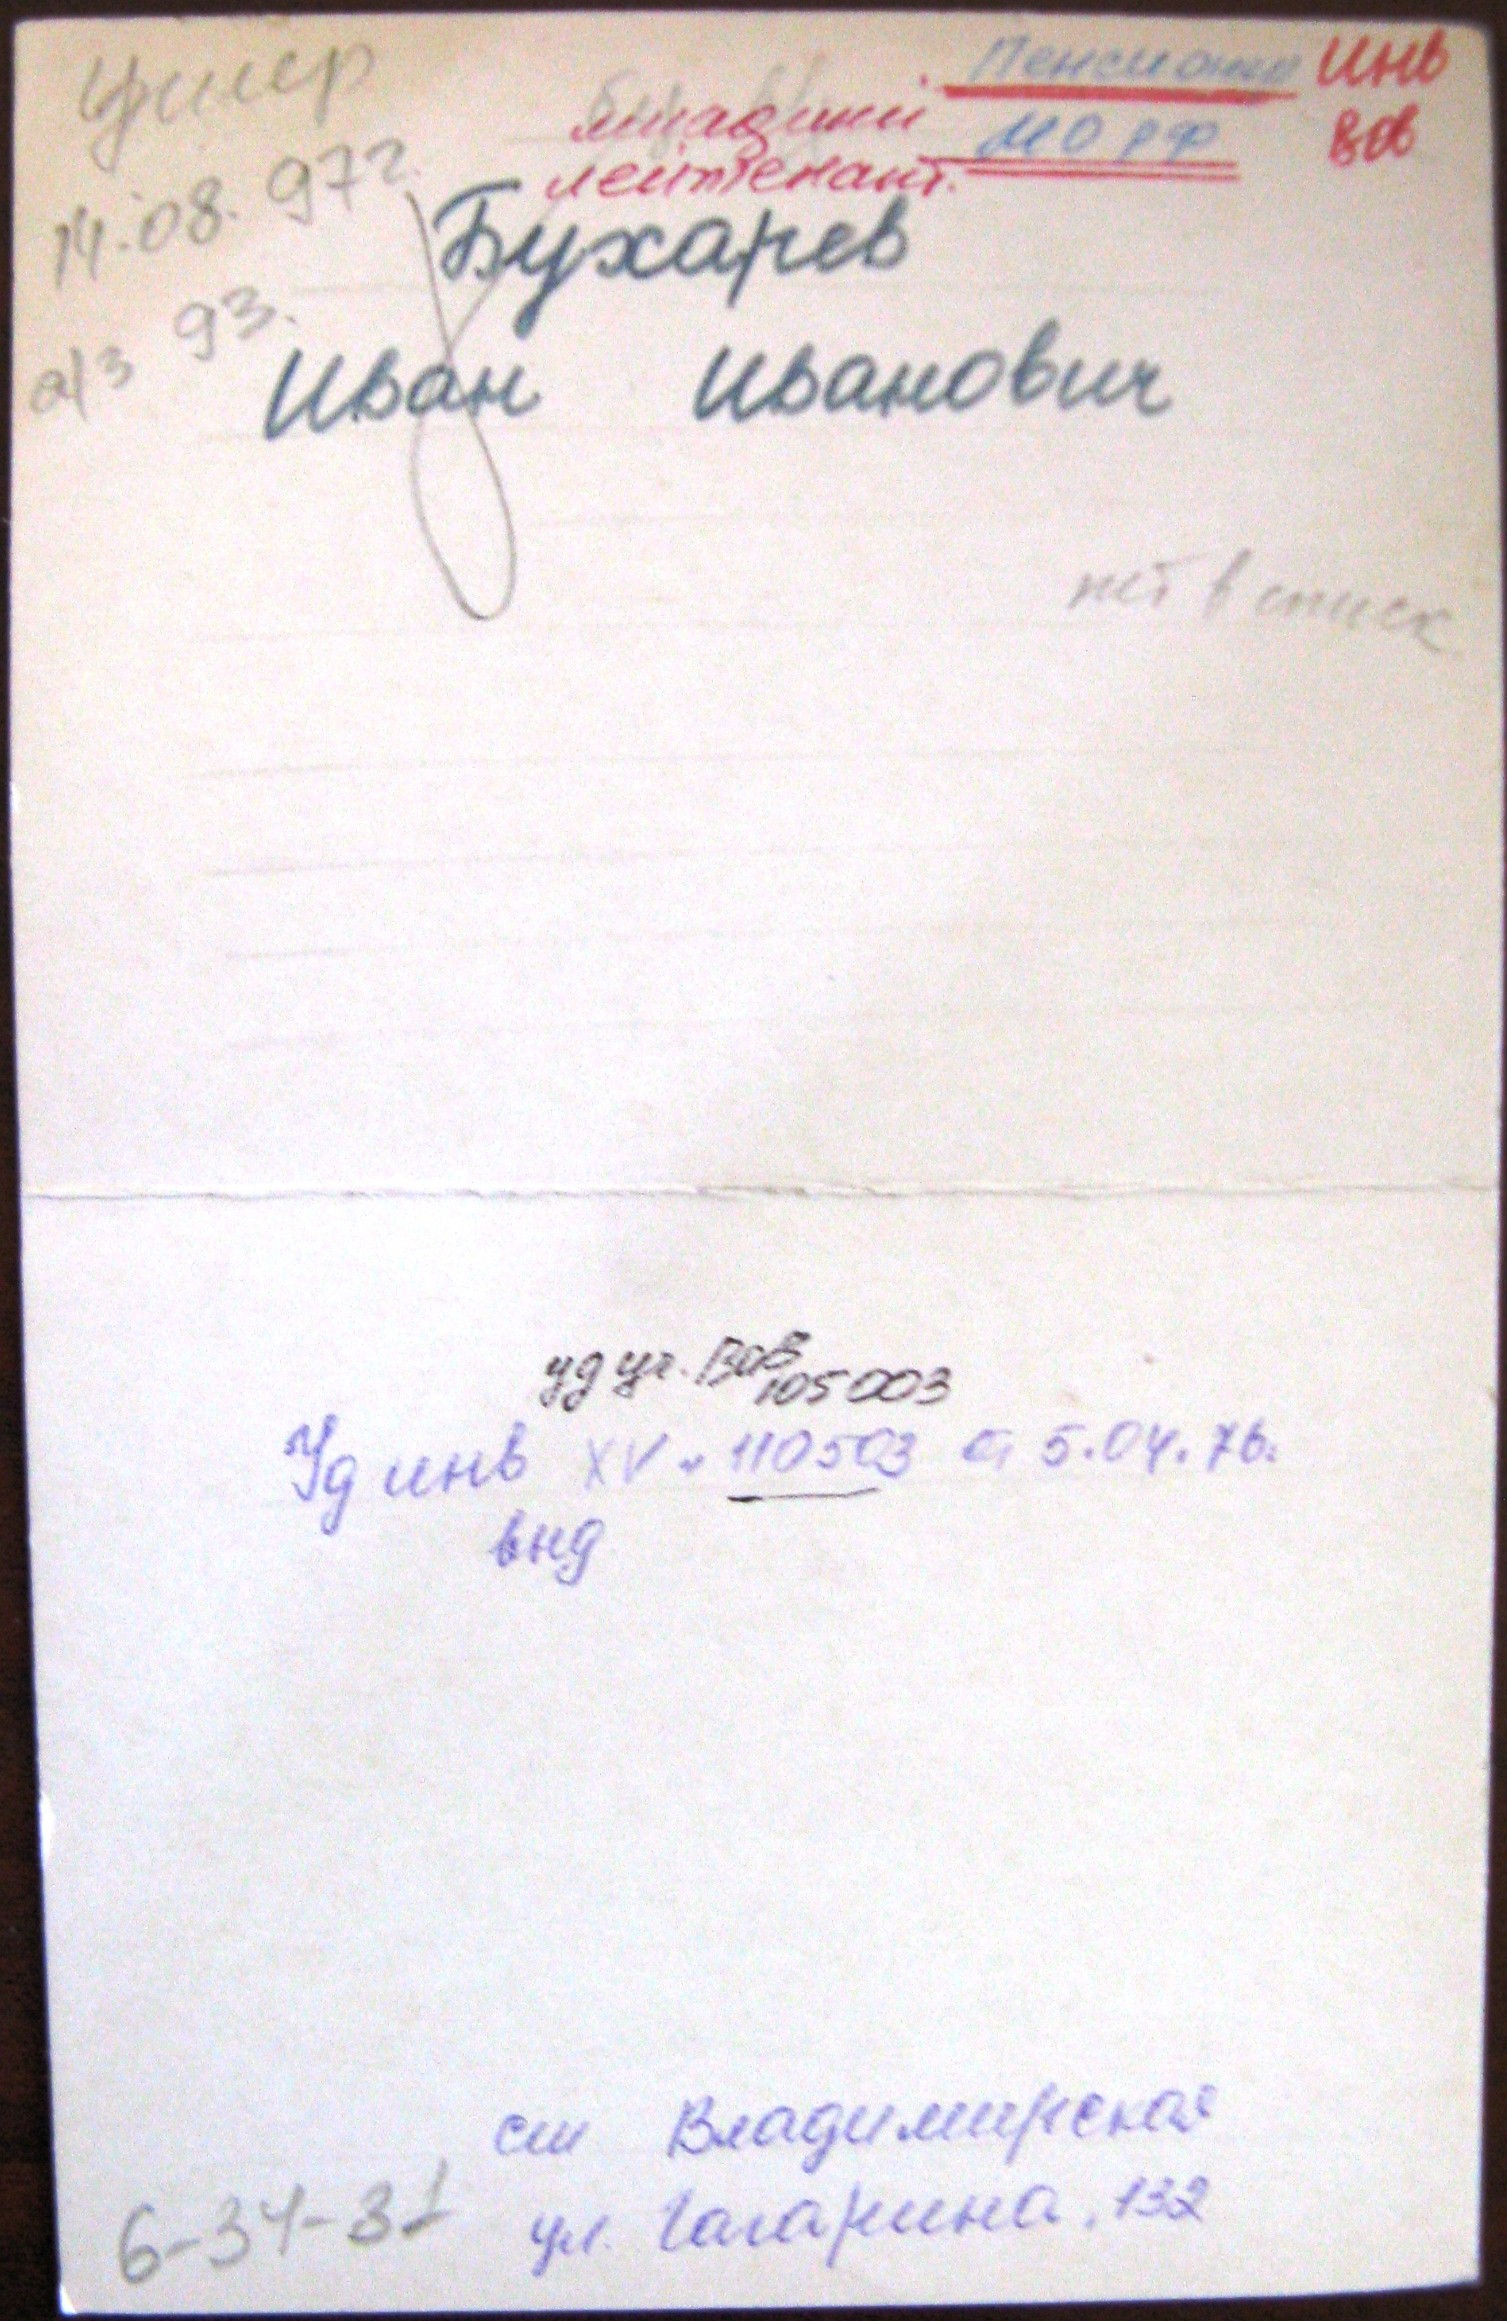 умер
14.08.97г.
а/з 93.
Пенсионер
МО РФ
ИНВ
ВОВ
младший
лейтенант.
Бухарев
Иван Иванович
нет в списк
уд уч. ВОВ
105003
Уд инв XV № 110503 от 5.04.76.
внд
ст Владимирская
ул. Гагарина, 132
6-34-31